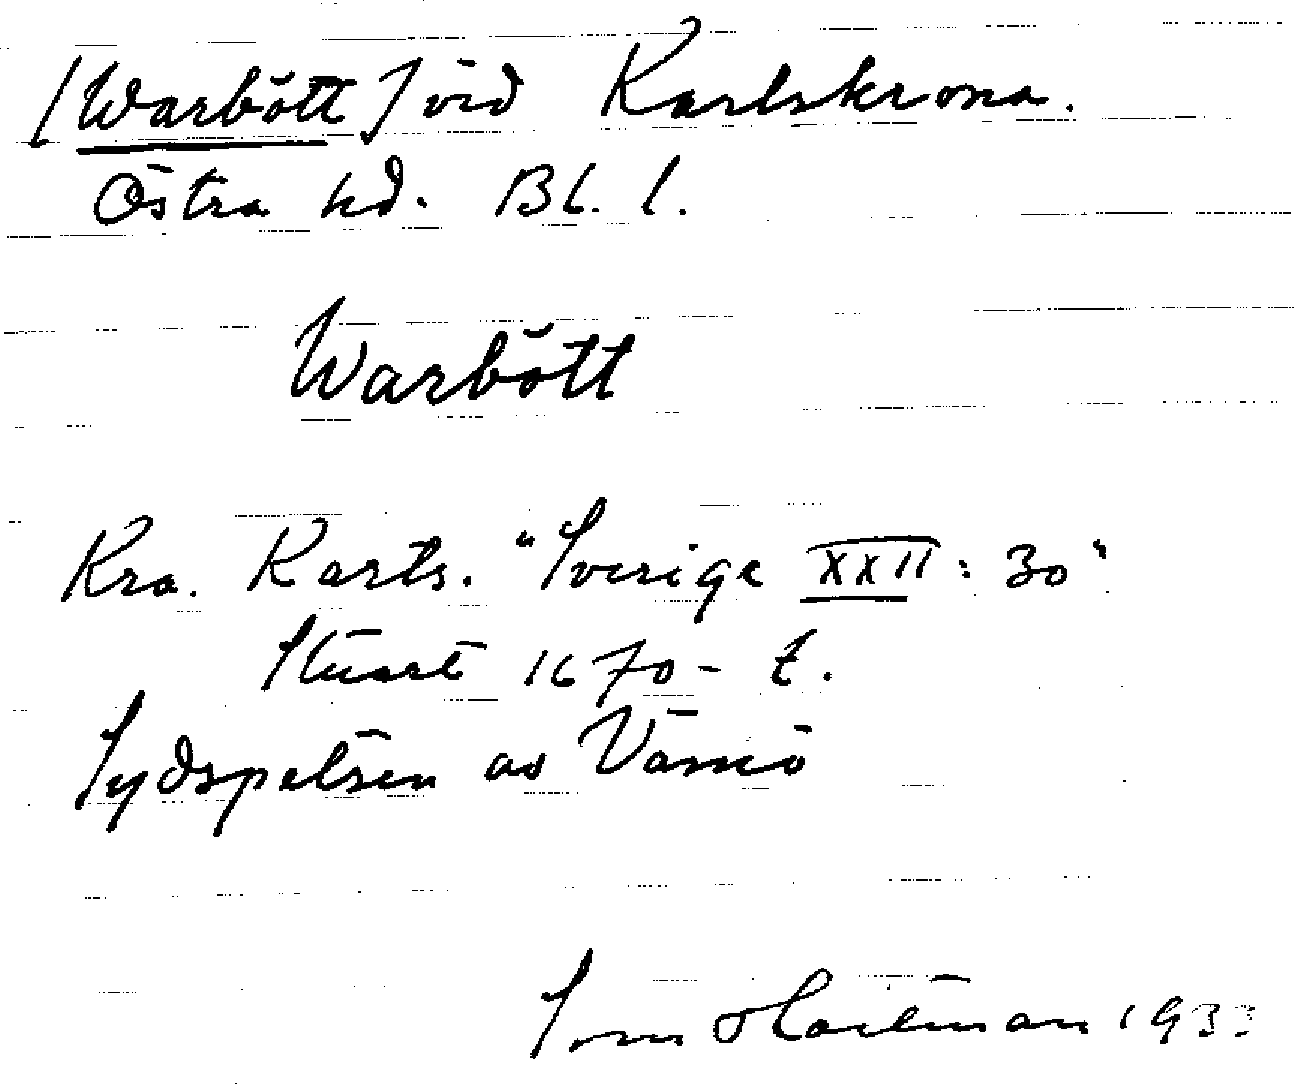 [Warbött] vid Karlskrona.
Östra hd. Bl. l.
Warbött
Kra. Karts. "Sverige XXII: 30"
Stuart 1670-t.
Sydspetsen av Vämö
Sven 1933